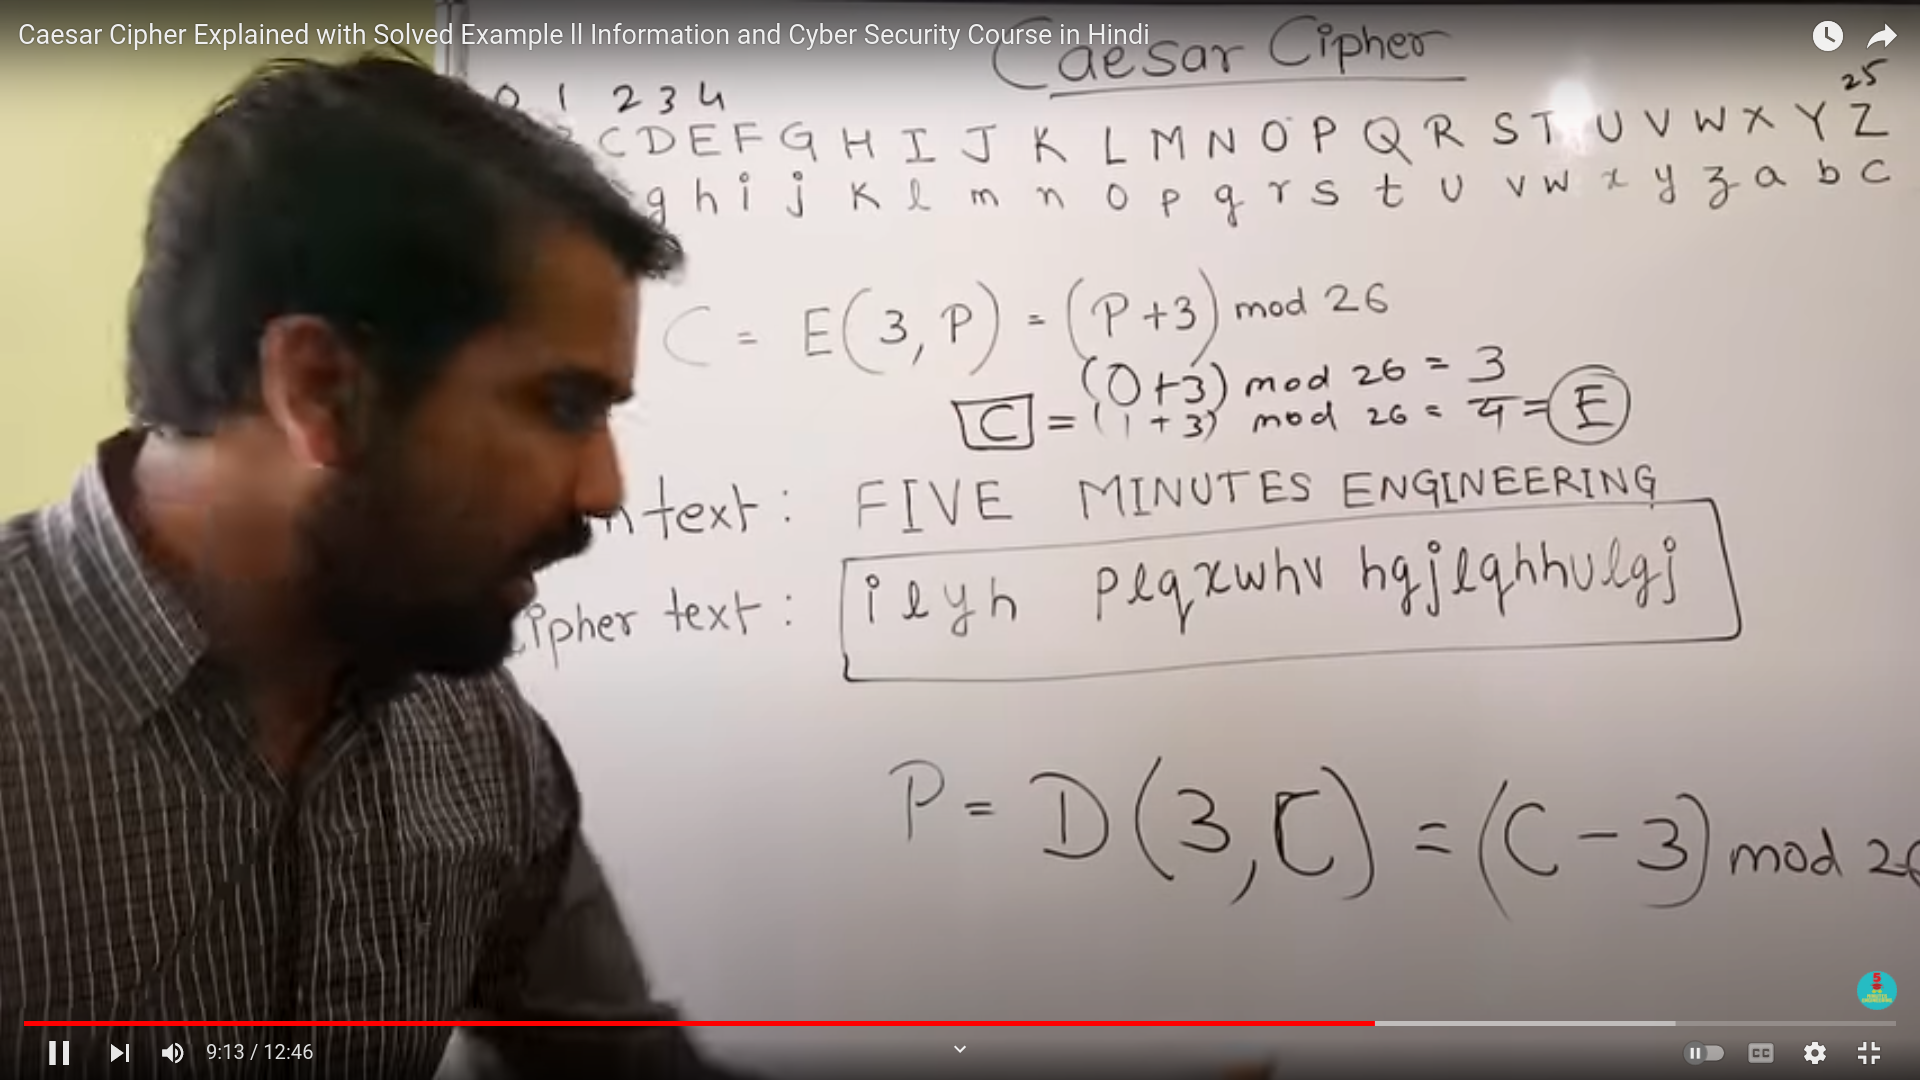 Caesar Cipher Explained with Solved Example ll Information and Cyber Security Course in Hindi
Caesar Cipher
0 1 2 3 4 25
C D E F G H I J K L M N O P Q R S T U V W X Y Z
g h i j k l m n o p q r s t u v w x y z a b c
C = E(3, P) = (P+3) mod 26
(0+3) mod 26 = 3
C = (1+3) mod 26 = 4 = E
n text : FIVE MINUTES ENGINEERING
cipher text : ilyh plqxwhv hqjlqhhulqj
P = D(3, C) = (C - 3) mod 26
9:13 / 12:46
CC